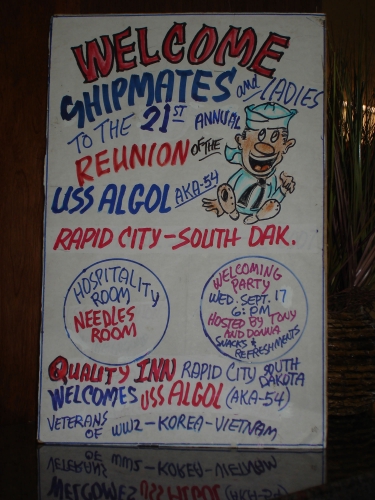 WELCOME
SHIPMATES and LADIES
TO THE 21ST ANNUAL
REUNION OF THE
USS ALGOL AKA-54
RAPID CITY - SOUTH DAK.
HOSPITALITY
ROOM
NEEDLES
ROOM
WELCOMING
PARTY
WED. SEPT. 17
6: PM
HOSTED BY TONY
AND DONNA
SNACKS &
REFRESHMENTS
QUALITY INN RAPID CITY SOUTH DAKOTA
WELCOMES USS ALGOL (AKA-54)
VETERANS OF WW2 - KOREA - VIETNAM